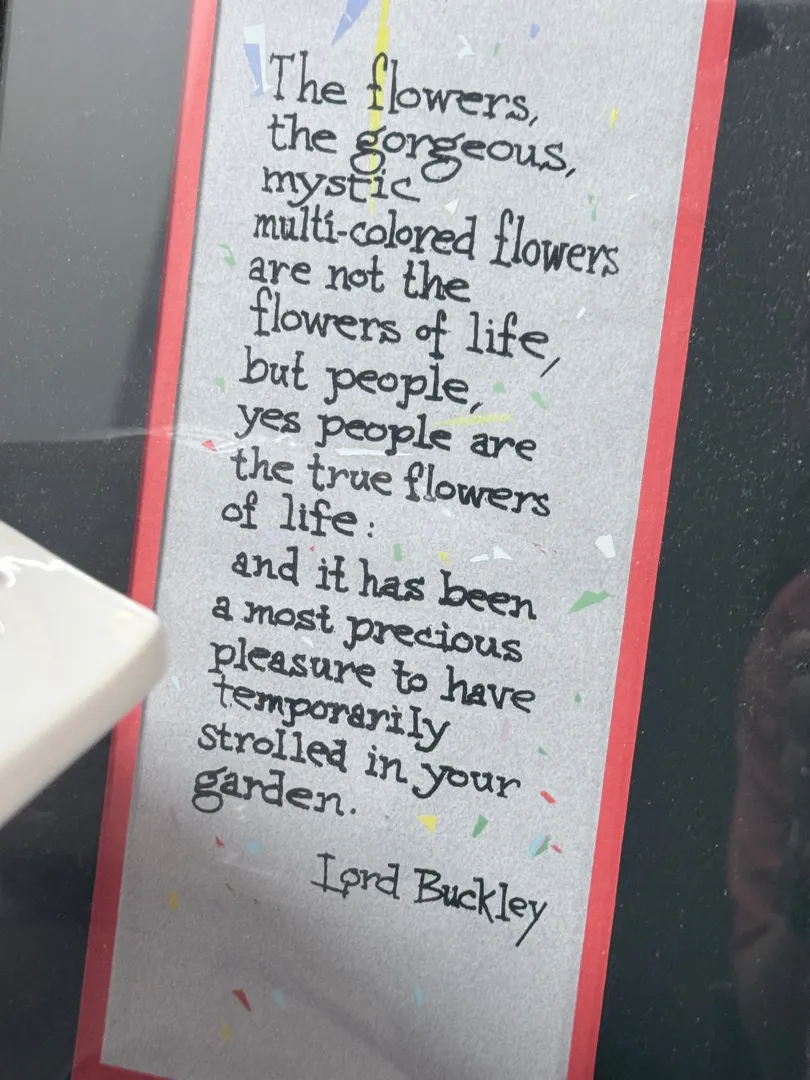 The flowers,
the gorgeous,
mystic
multi-colored flowers
are not the
flowers of life,
but people,
yes people are
the true flowers
of life:
and it has been
a most precious
pleasure to have
temporarily
strolled in your
garden.
Lord Buckley